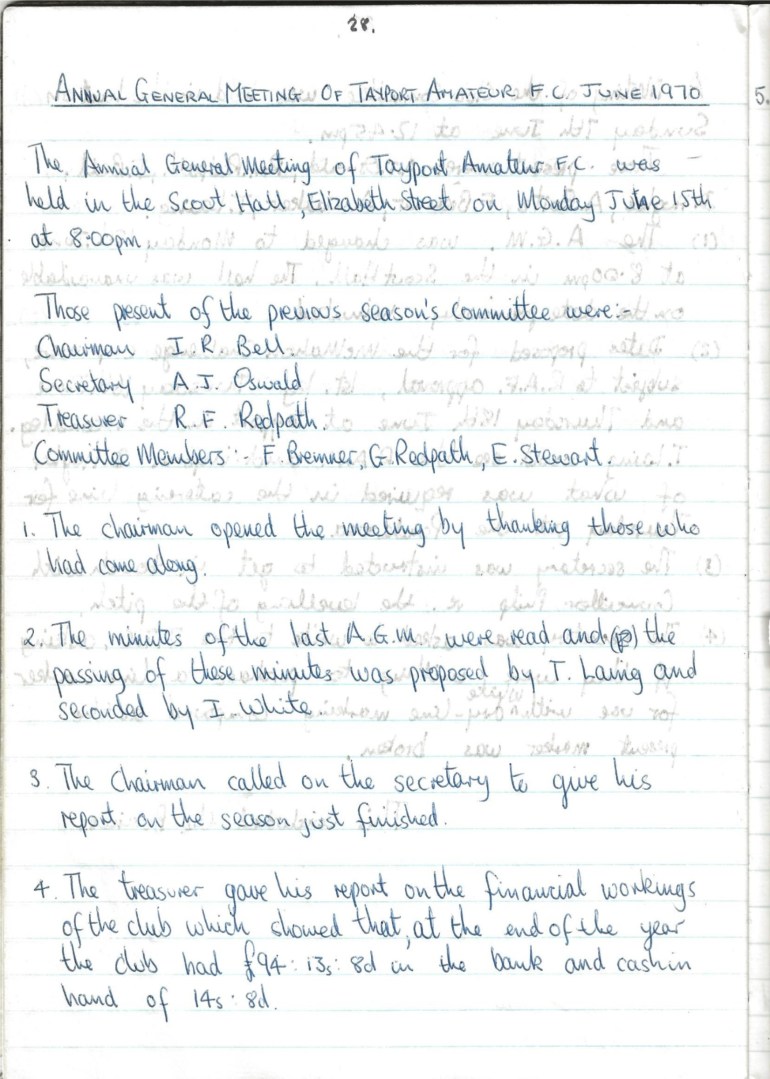 28.
ANNUAL GENERAL MEETING OF TAYPORT AMATEUR F.C. JUNE 1970
5.
The Annual General Meeting of Tayport Amateur F.C. was
held in the Scout Hall, Elizabeth Street on Monday June 15th
at 8:00pm
Those present of the previous season's committee were:-
Chairman I R Bell.
Secretary A.J. Oswald
Treasurer R.F. Redpath.
Committee Members:- F. Bremner, G. Redpath, E. Stewart.
1. The chairman opened the meeting by thanking those who
had come along.
2. The minutes of the last A.G.M. were read and (p) the
passing of these minutes was proposed by T. Laing and
seconded by I. White.
3. The Chairman called on the secretary to give his
report on the season just finished.
4. The treasurer gave his report on the financial workings
of the club which showed that, at the end of the year
the club had £94:13s:8d in the bank and cash in
hand of 14s:8d.